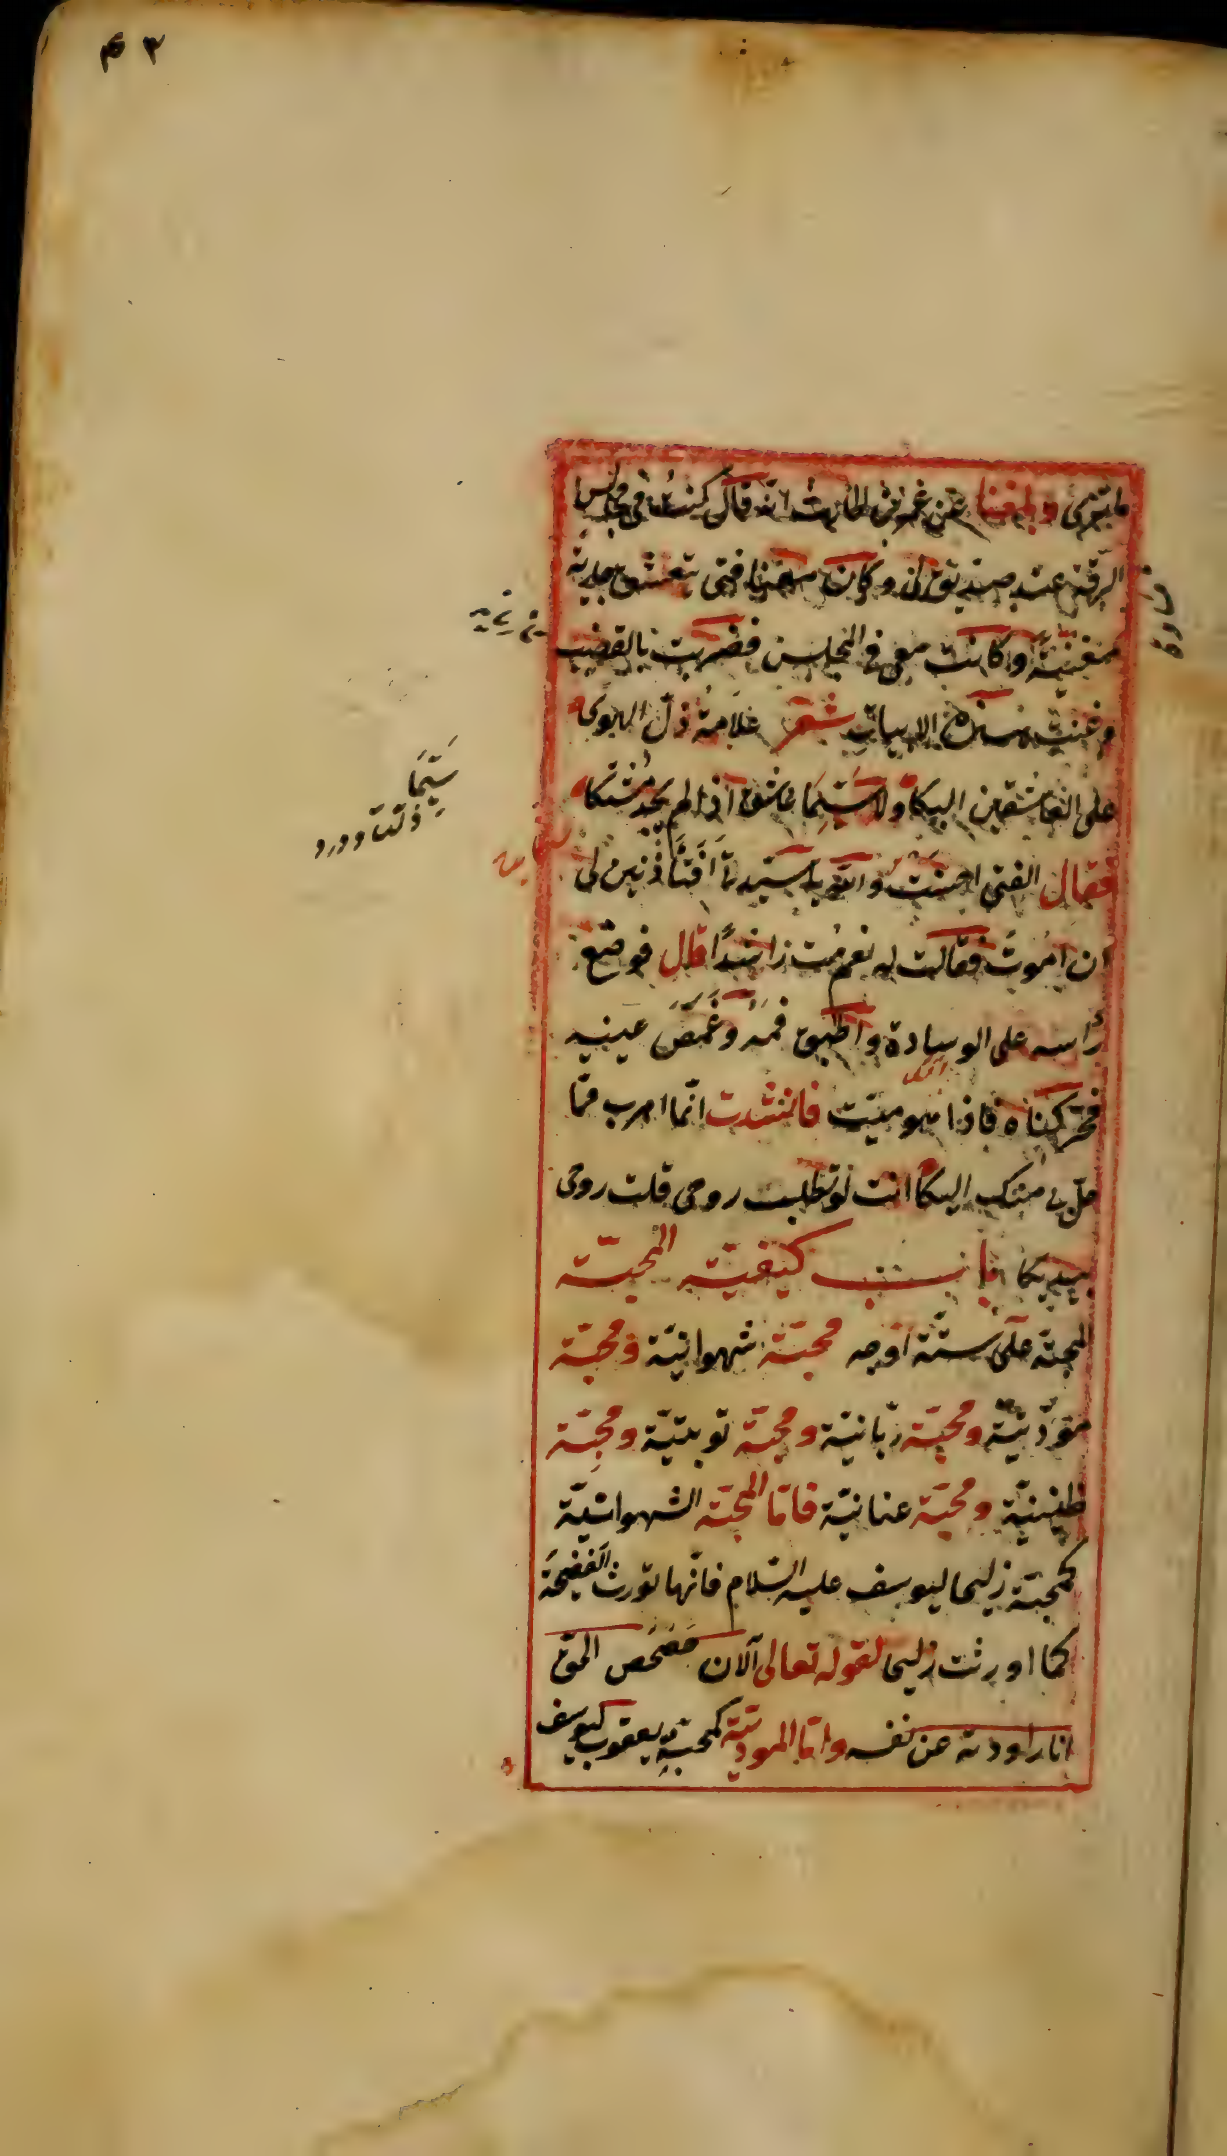 ٤٣
ما ترى وبلغنا عن عمر بن الحارث انه قال كنت في مجلس
الرقة عند صديق لى وكان معنا فتى يتعشق جارية
مغنية وكانت معى فى المجلس فضربت بالقضيب
وغنيت هذه الابيات شعر علامة ذل الهوى
على العاشقين البكا ولا سَيّمَا عاشق اذا لم يجد مشتكا
فقال الفتى احسنت والله يا سيدتى اَفَتَأذنين لى
ان اموت فقالت له نعم مت راشدًا قال فوضع
رأسه على الوسادة واطبق فمه وَغَمَّضَ عينيه
فحركناه فاذا هو ميّت فانشدت انّما اهرب ممّا
حلّ بى منك اليكا انت لو تطلب روحى قلت روحى
بيديكا باب كيفيّة المحبّة
المحبّة على ستّة اوجه محبّة شهوانيّة ومحبّة
مودّتيّة ومحبّة ربّانيّة ومحبّة توبتيّة ومحبّة
طينيّة ومحبّة عنانيّة فامّا المحبّة الشهوانيّة
كمحبّة زليحا ليوسف عليه السّلام فانّها تورث الفضيحَة
كما اورثت زليحا لقوله تعالى آلان حَصْحَص الحقّ
انا راودته عن نفسه وامّا المودّتيّة كمحبّة يعقوب ليوسف
سَيّمَا